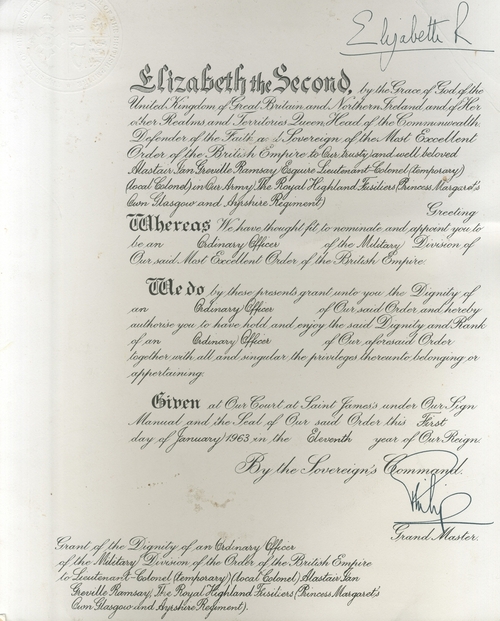 Elizabeth R
Elizabeth the Second, by the Grace of God, of the
United Kingdom of Great Britain and Northern Ireland and of Her
other Realms and Territories Queen, Head of the Commonwealth,
Defender of the Faith and Sovereign of the Most Excellent
Order of the British Empire to Our trusty and well beloved
Alastair Ian Greville Ramsay Esquire Lieutenant-Colonel (temporary)
(local Colonel) in Our Army, The Royal Highland Fusiliers (Princess Margaret's
Own Glasgow and Ayrshire Regiment)
Greeting
Whereas We have thought fit to nominate and appoint you to
be an Ordinary Officer of the Military Division of
Our said Most Excellent Order of the British Empire.
We do by these presents grant unto you the Dignity of
an Ordinary Officer of Our said Order and hereby
authorise you to have hold and enjoy the said Dignity and Rank
of an Ordinary Officer of Our aforesaid Order
together with all and singular the privileges thereunto belonging or
appertaining.
Given at Our Court at Saint James's under Our Sign
Manual and the Seal of Our said Order this First
day of January 1963 in the Eleventh year of Our Reign.
By the Sovereign's Command.
Philip
Grand Master.
Grant of the Dignity of an Ordinary Officer
of the Military Division of the Order of the British Empire
to Lieutenant-Colonel (temporary) (local Colonel) Alastair Ian
Greville Ramsay, The Royal Highland Fusiliers (Princess Margaret's
Own Glasgow and Ayrshire Regiment).